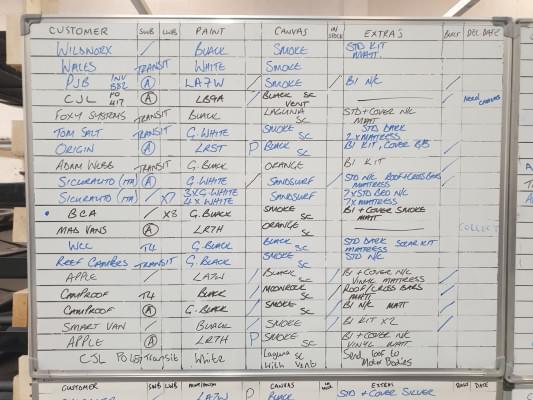 CUSTOMER SWB LWB PAINT CANVAS IN STOCK EXTRA'S BUILT DEL DATE
WILDWORX / BLACK SMOKE STD KIT
MATT.
WALES TRANSIT WHITE SMOKE
PJB INV 1882 A LA7W / SMOKE / B1 N/C /
CJL PO 417 A LB9A / BLACK SC
VENT / NEED CANVAS
FOXY SYSTEMS TRANSIT BLACK LAGUNA
SC STD + COVER N/C
MATT
TOM SALT TRANSIT G.WHITE SMOKE
SC STD DARK
2 x MATRESS
ORIGIN A LRST P BLACK
SC / B1 KIT, COVER /
ADAM WEBB TRANSIT G.BLACK ORANGE B1 KIT
SICURAUTO (ITA) A G.WHITE / SANDSURF / STD N/C ROOF+CROSS BARS
MATTRESS
SICURAUTO (ITA) / X7 3 X G.WHITE
4 X WHITE SANDSURF 7 X STD BED N/C
7 X MATTRESS
BCA / X8 G.BLACK SMOKE
SC B1 + COVER SMOKE
MATT
MAD VANS A LR7H ORANGE
SC COLLECT
WCC T4 G.BLACK BLACK
SC STD DARK SOLAR KIT
MATTRESS
REEF CAMPERS TRANSIT G.BLACK SMOKE
SC STD N/C
APPLE / LA7W / BLACK
SC / B1 + COVER N/C
VINYL MATTRESS /
CAMPROOF T4 BLACK MOONROCK
SC / ROOF/CROSS BARS
MATT /
CAMPROOF A G.BLACK / SMOKE
SC / B1 N/C MATT /
SMART VAN / BLACK / SMOKE / B1 KIT X2 /
APPLE A LR7H P SMOKE
SC B1 + COVER N/C
VINYL MATT
CJL Transit White Laguna SC
With Vent Send roof to
Motor Bodies
CUSTOMER SWB LWB CANVAS EXTRAS BUILT DATE
LA7W P BLACK STD + COVER SILVER